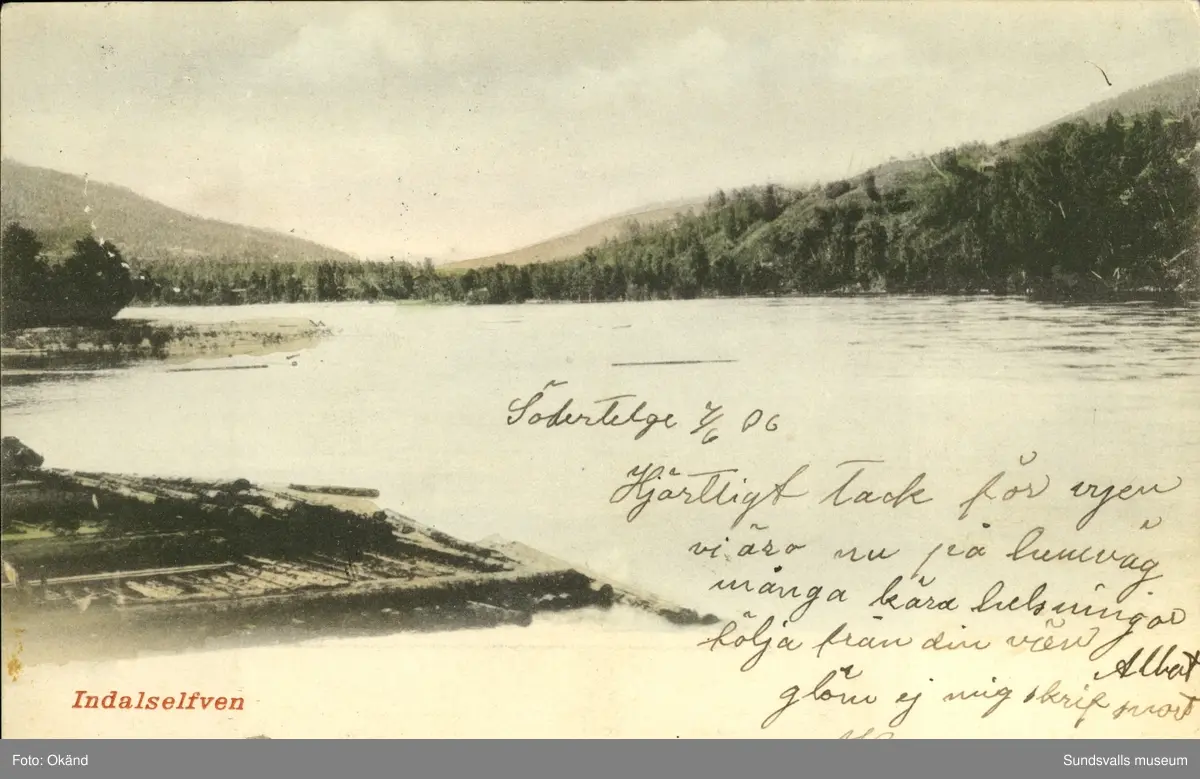 Södertelge 7/6 06
Hjärtligt tack för vyen
vi äro nu på hemväg
många kära helsningar
följa från din vän
Albert
glöm ej mig skrif snart
Indalselfven
Foto: Okänd
Sundsvalls museum